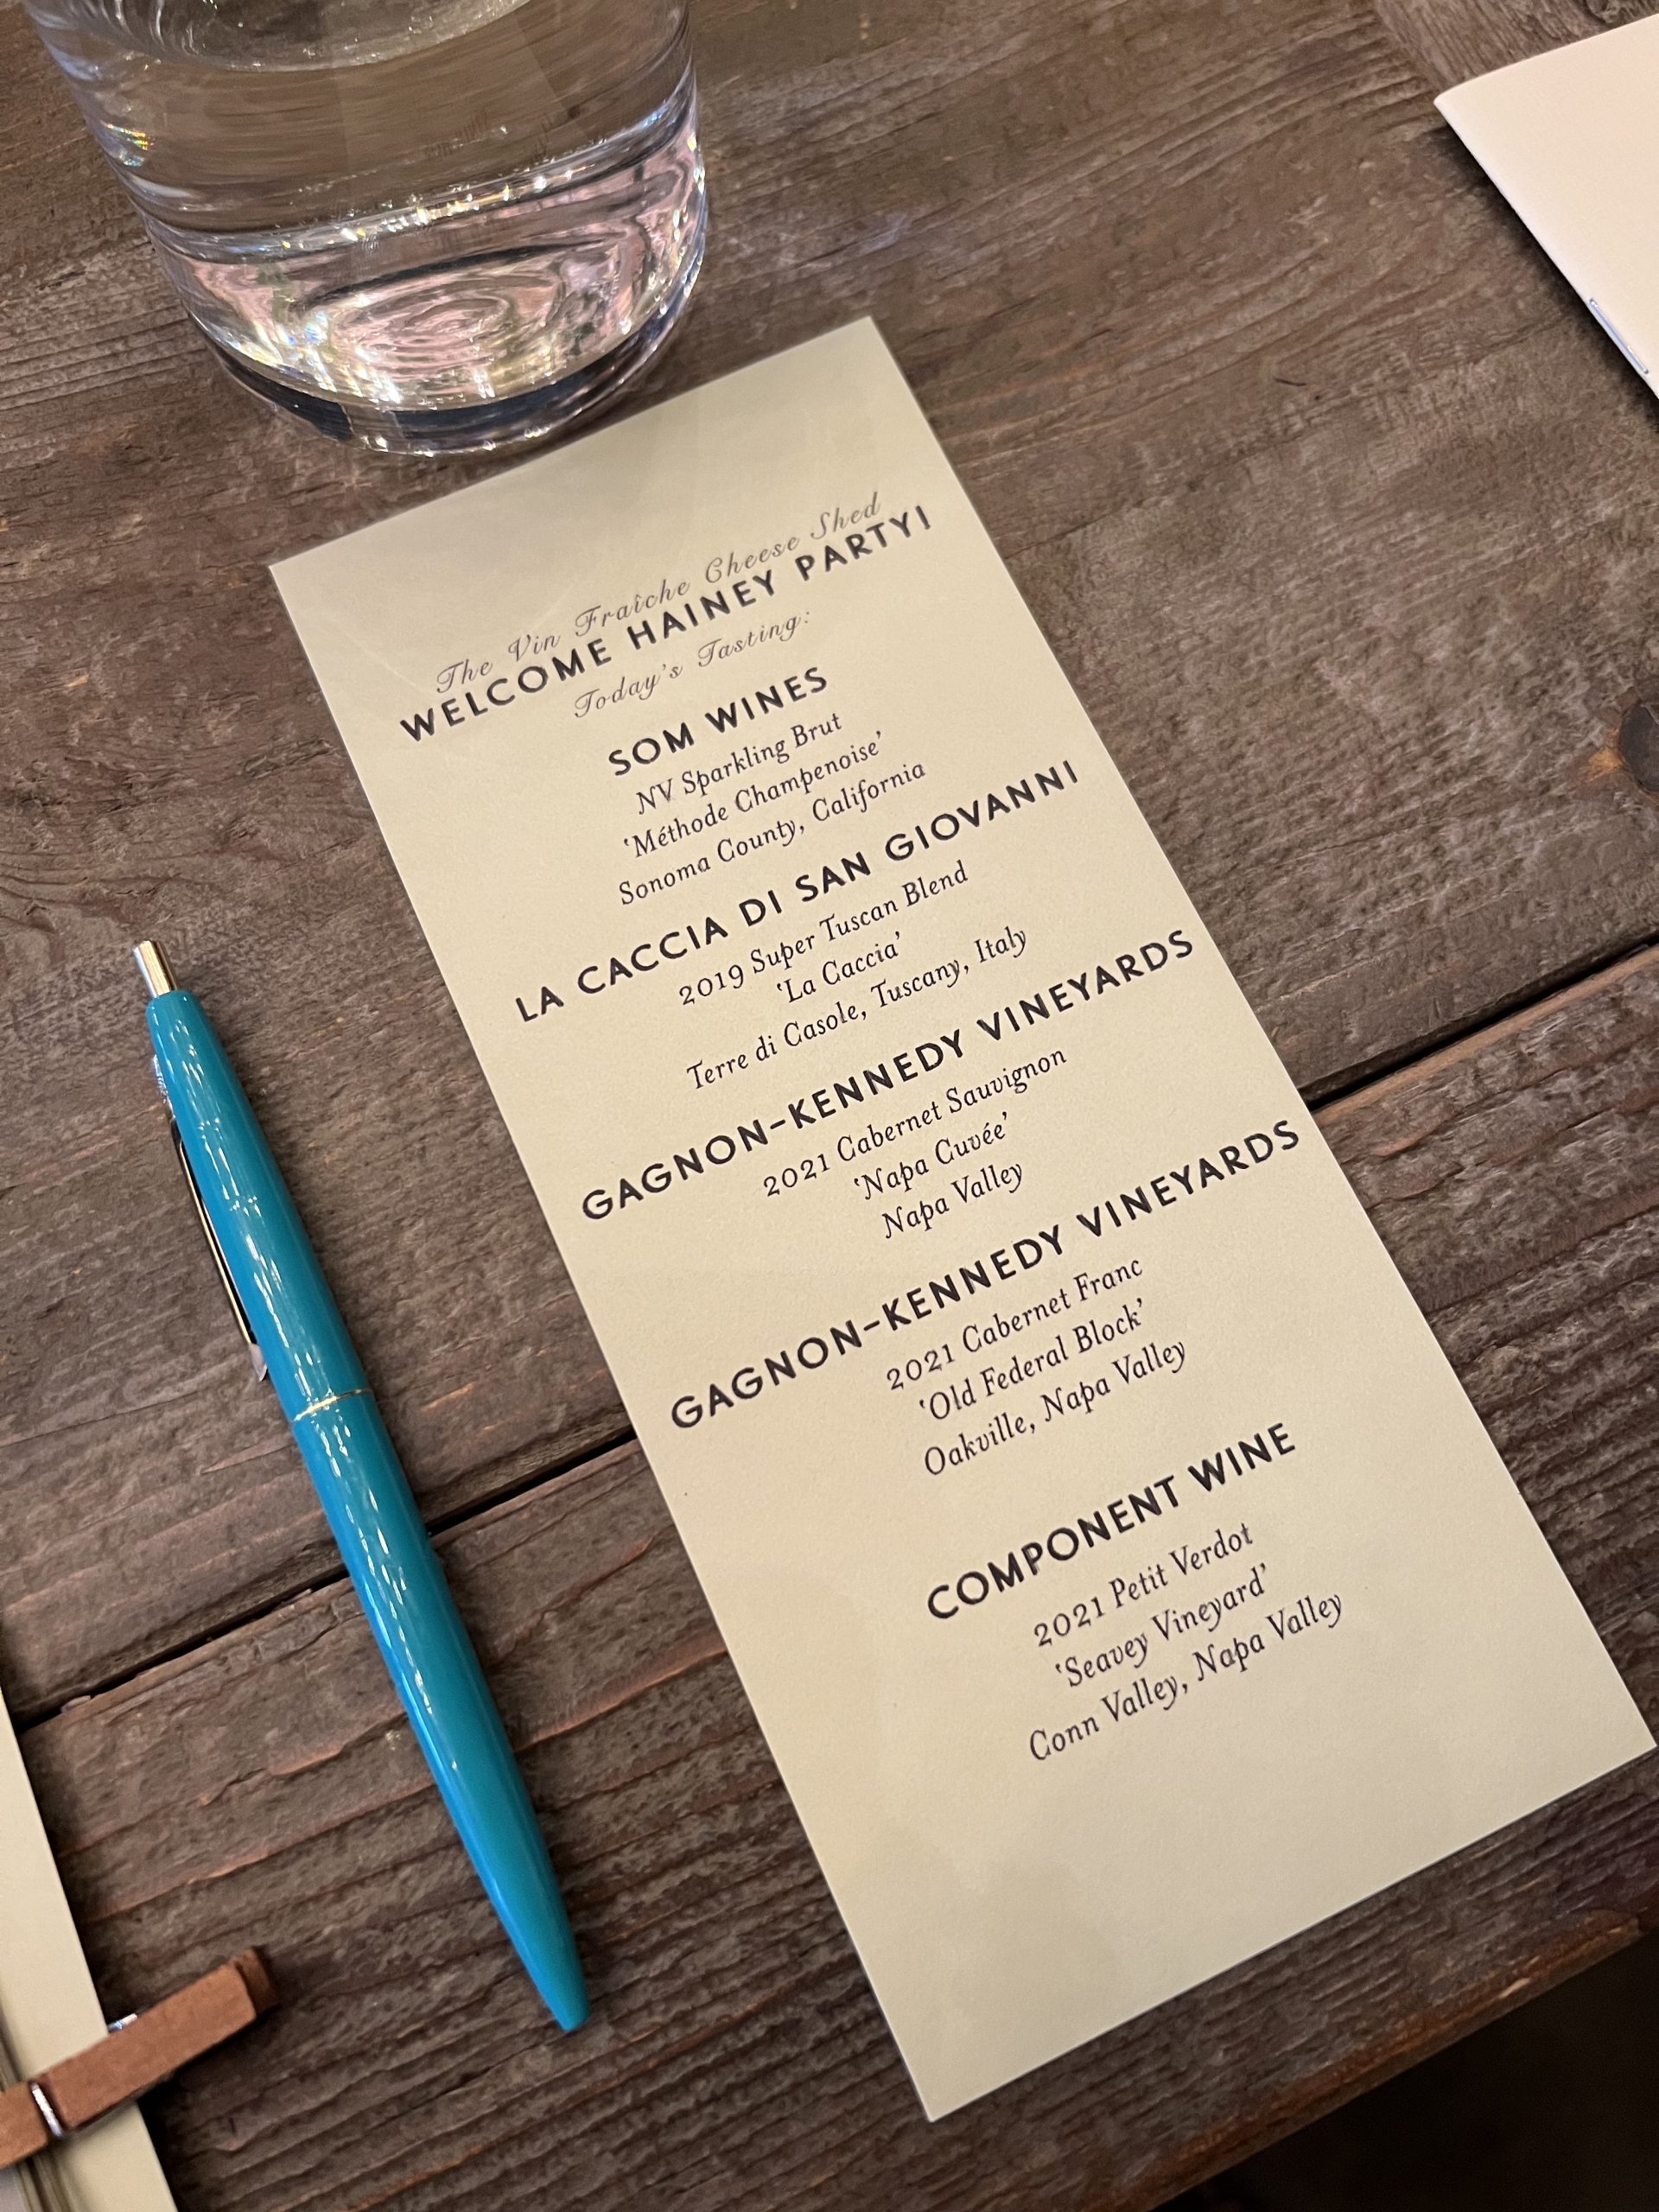 The Vin Fraîche Cheese Shed
WELCOME HAINEY PARTY!
Today's Tasting:
SOM WINES
NV Sparkling Brut
'Méthode Champenoise'
Sonoma County, California
LA CACCIA DI SAN GIOVANNI
2019 Super Tuscan Blend
'La Caccia'
Terre di Casole, Tuscany, Italy
GAGNON-KENNEDY VINEYARDS
2021 Cabernet Sauvignon
'Napa Cuvée'
Napa Valley
GAGNON-KENNEDY VINEYARDS
2021 Cabernet Franc
'Old Federal Block'
Oakville, Napa Valley
COMPONENT WINE
2021 Petit Verdot
'Seavey Vineyard'
Conn Valley, Napa Valley